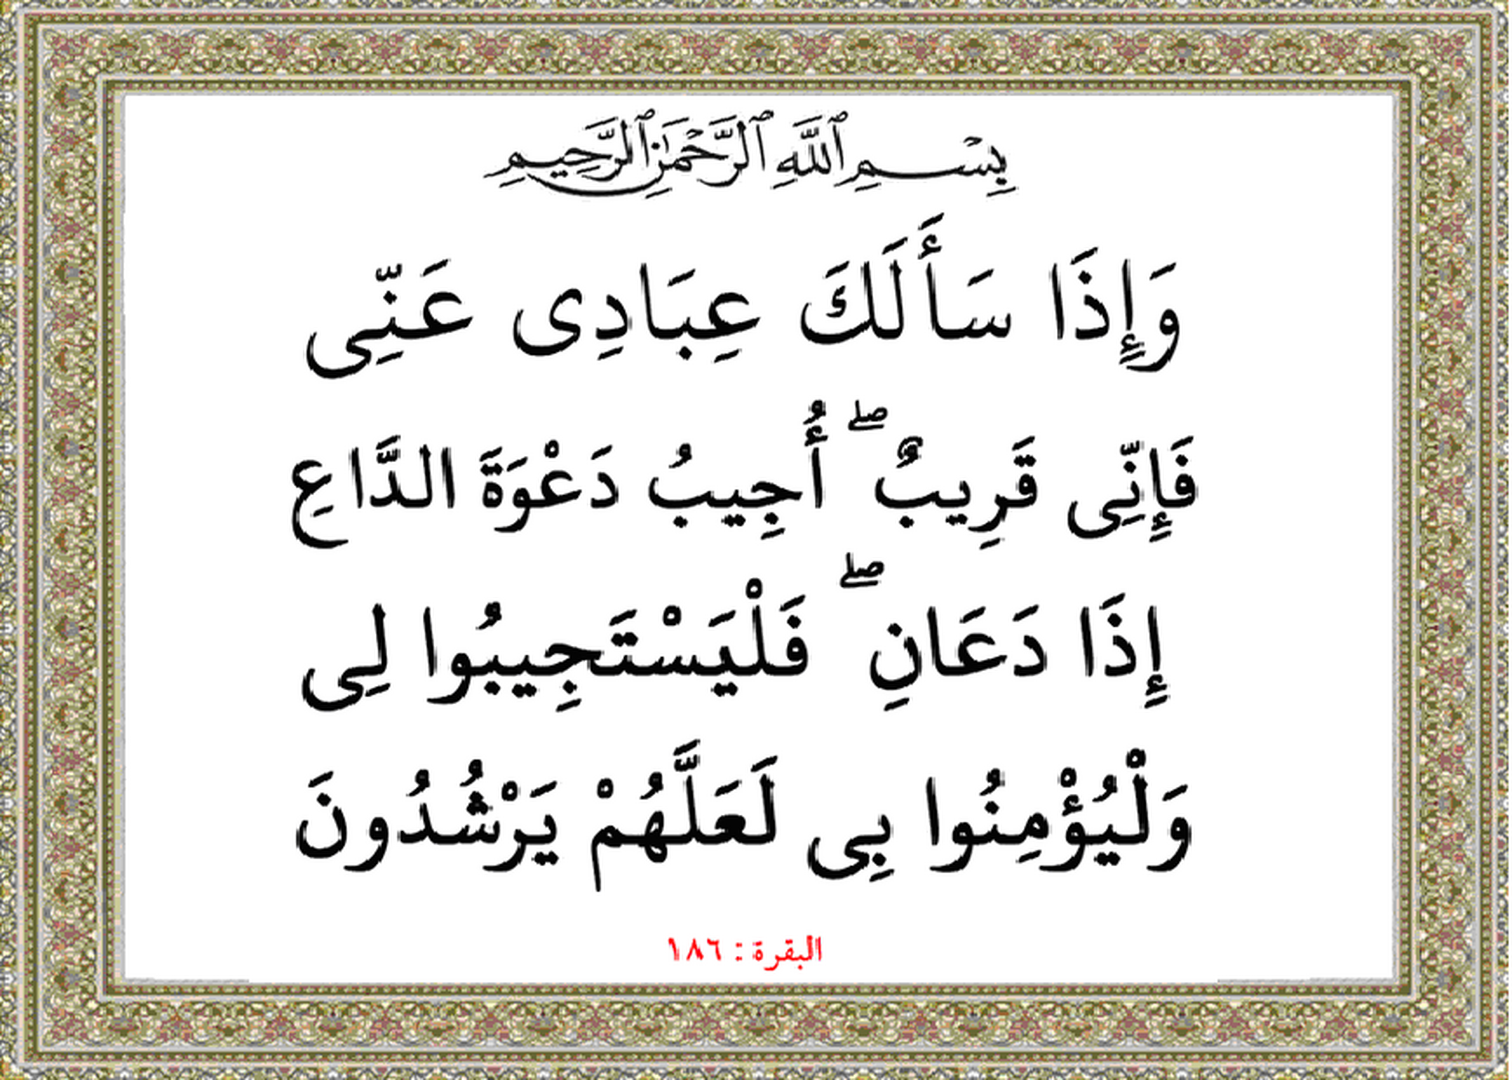 بِسْمِ ٱللَّهِ ٱلرَّحْمَٰنِ ٱلرَّحِيمِ
وَإِذَا سَأَلَكَ عِبَادِى عَنِّى
فَإِنِّى قَرِيبٌ ۖ أُجِيبُ دَعْوَةَ الدَّاعِ
إِذَا دَعَانِ ۖ فَلْيَسْتَجِيبُوا لِى
وَلْيُؤْمِنُوا بِى لَعَلَّهُمْ يَرْشُدُونَ
البقرة : ١٨٦